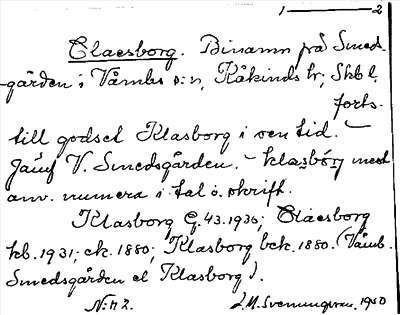 1 — 2
Claesborg. Binamn på Smeds-
gården i Våmbs s:n, Kåkinds hr, Skb l.
forts.
till godset Klasborg i sen tid. –
Jämf V. Smedsgården. – klasbórj mest
anv. numera i tal o. skrift.
Klasborg G. 43. 1936; Claesborg
kb. 1931; ek. 1880; Klasborg bek. 1880. (Våmb.
Smedsgården el Klasborg).
N:r 2. 1950